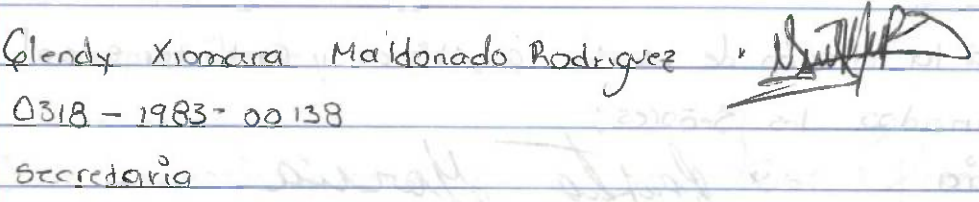 Glendy Xiomara Maldonado Rodriguez
0318 - 1983 - 00138
secretaria